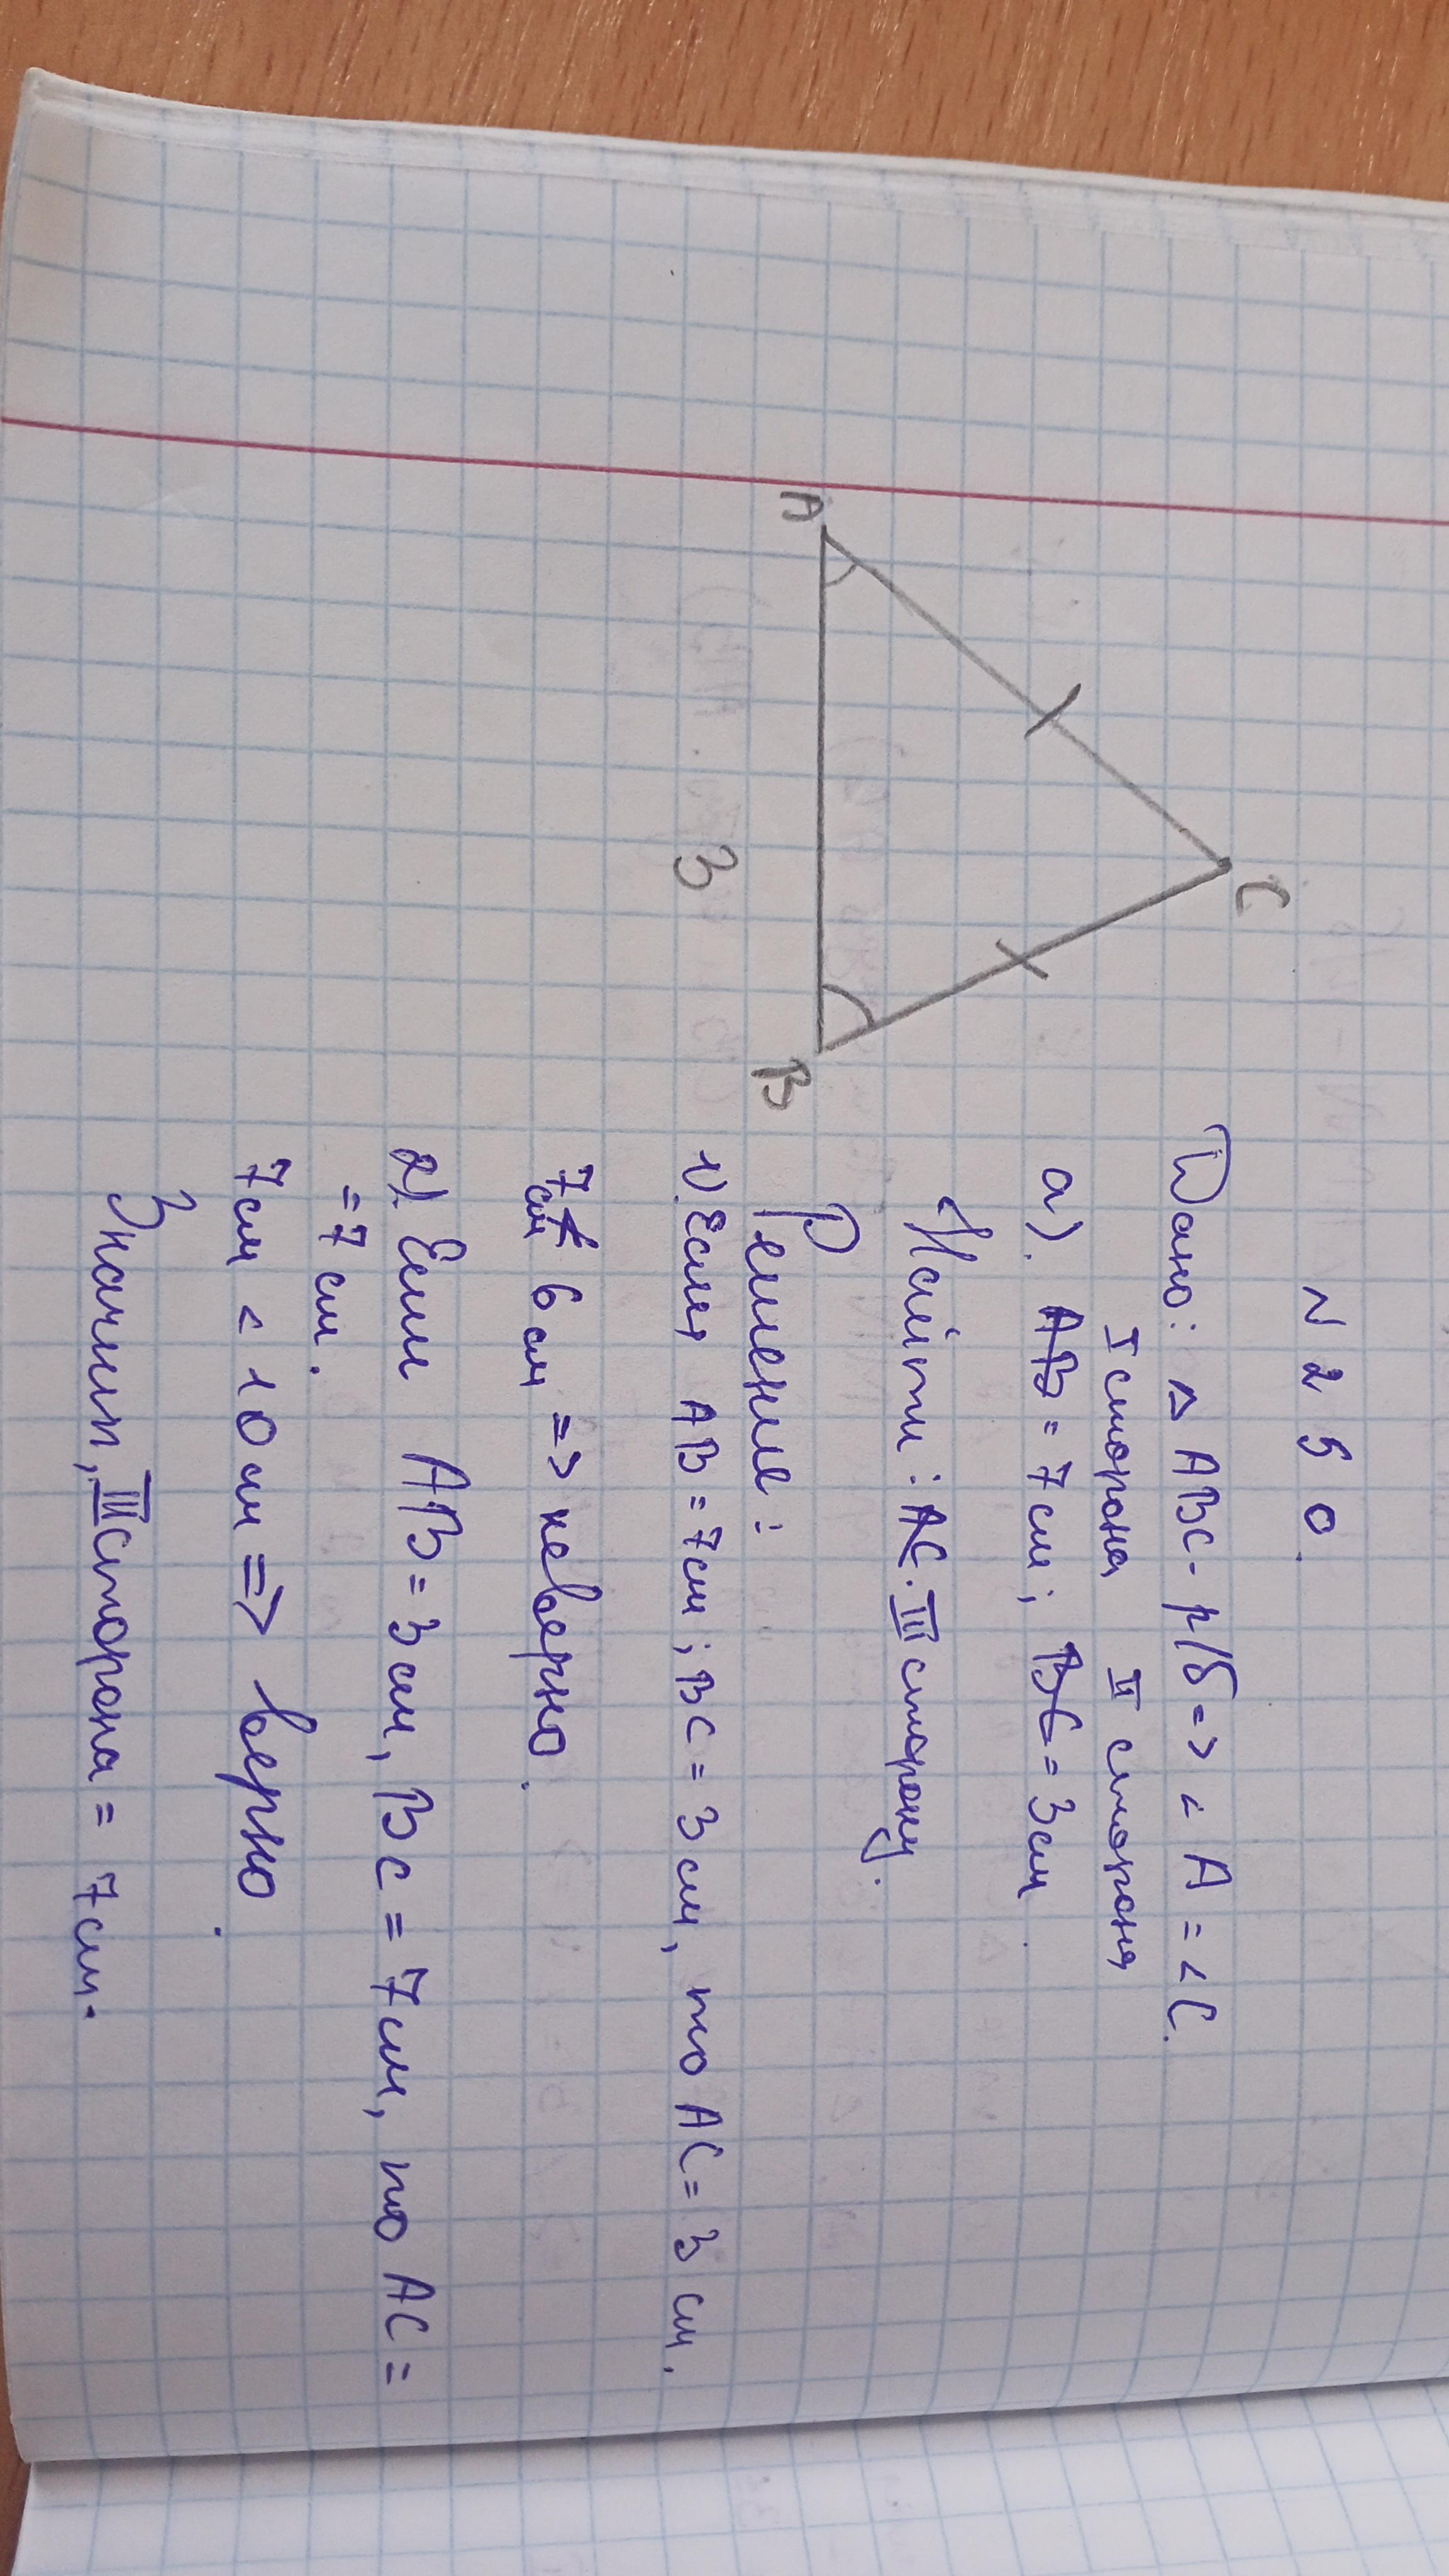 N 250.
Дано: △ ABC - р/б => < A = < C.
I сторона II сторона
а). AB = 7см; BC = 3см.
Найти: AC. III сторону.
Решение:
1). Если AB = 7см; BC = 3см, то AC = 3 см.
7см ≮ 6 см => неверно.
2). Если AB = 3см, BC = 7см, то AC =
= 7 см.
7см < 10см => верно.
Значит, III сторона = 7см.
A
C
B
3